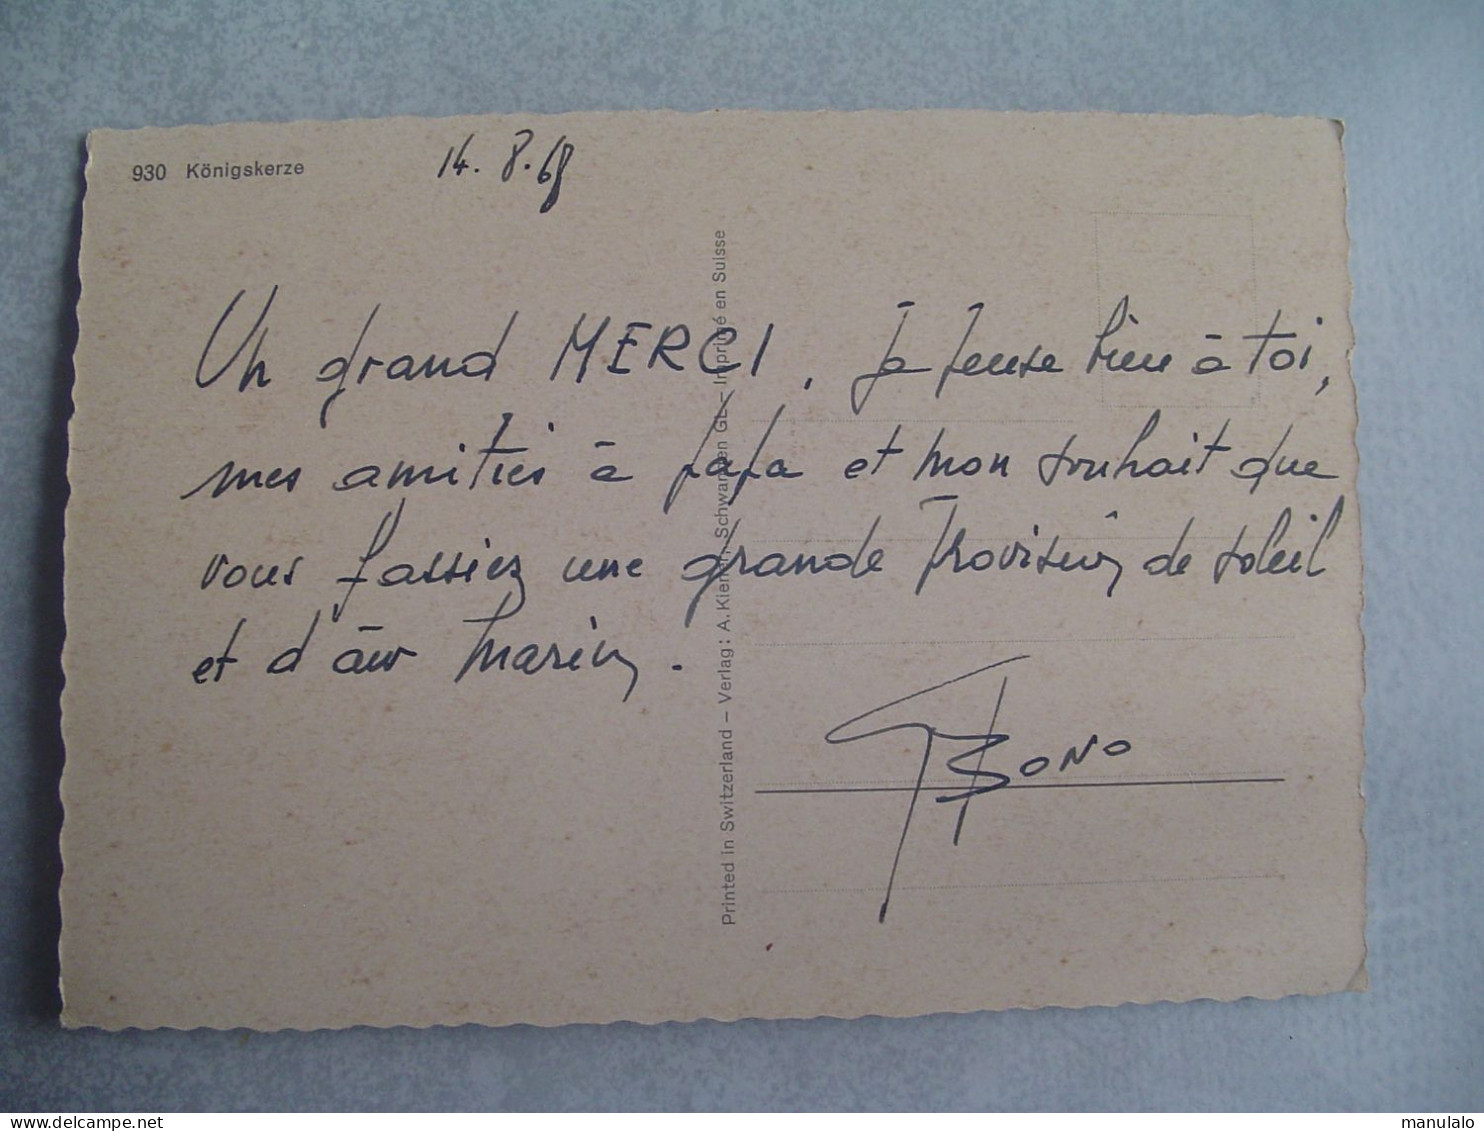 930 Königskerze
14. 8. 68
Un grand MERCI. Je pense bien à toi,
mes amitiés à papa et mon souhait que
vous fassiez une grande provision de soleil
et d'air marin.
Bono
Printed in Switzerland – Verlag: A. Schwanden GL – Imprimé en Suisse
www.delcampe.net
manulalo